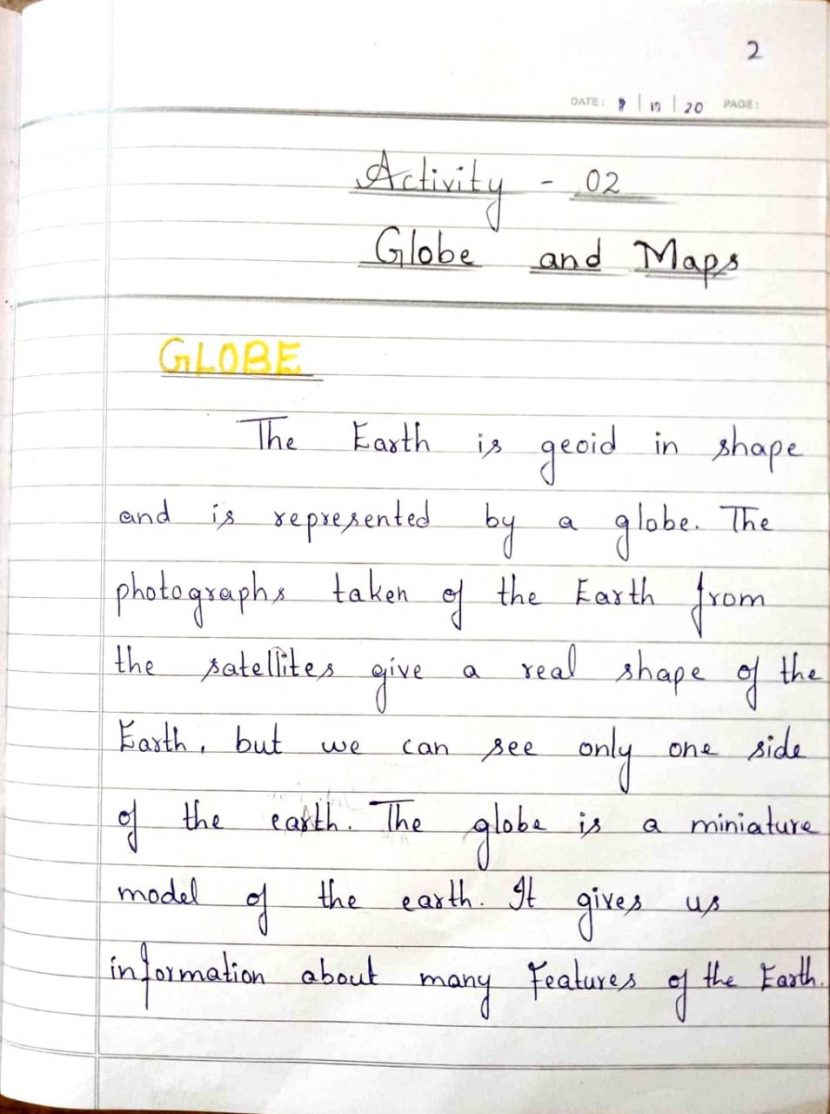 2
DATE: | | 20 PAGE:
Activity - 02
Globe and Maps
GLOBE
The Earth is geoid in shape
and is represented by a globe. The
photographs taken of the Earth from
the satellites give a real shape of the
Earth, but we can see only one side
of the earth. The globe is a miniature
model of the earth. It gives us
information about many Features of the Earth.